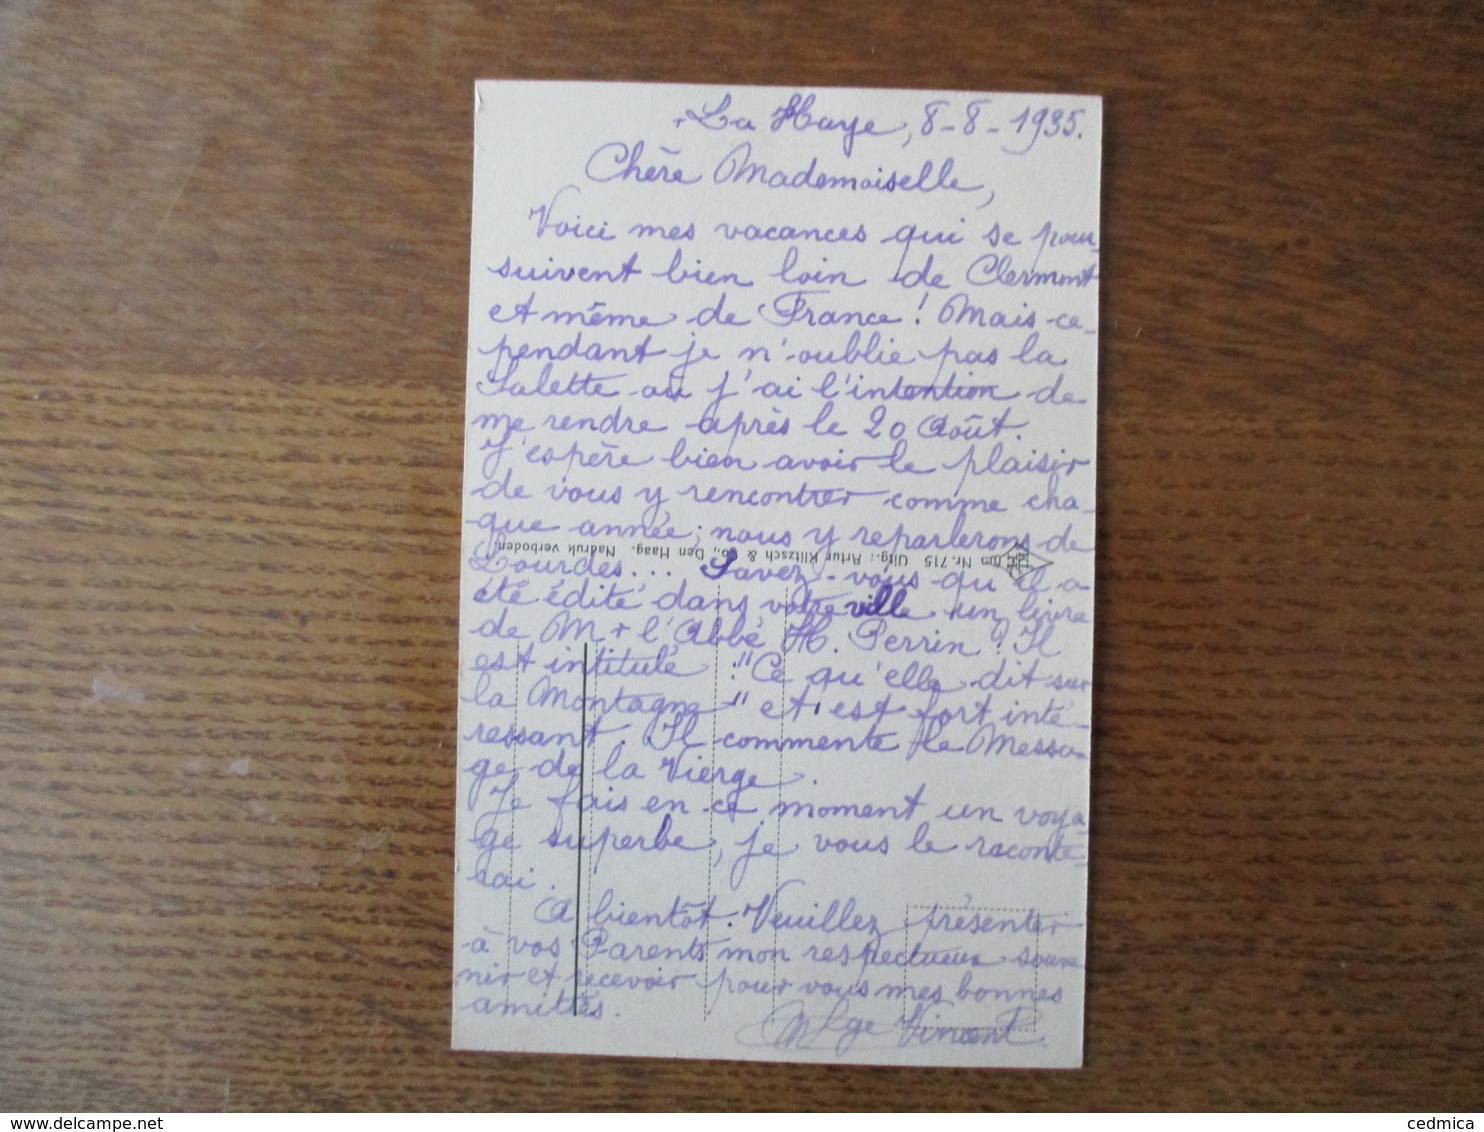 La Haye, 8-8-1935.
Chère Mademoiselle,
Voici mes vacances qui se pour-
suivent bien loin de Clermont
et même de France ! Mais ce-
pendant je n'oublie pas la
Salette où j'ai l'intention de
me rendre après le 20 Août.
J'espère bien avoir le plaisir
de vous y rencontrer comme cha-
que année; nous y reparlerons de
Nr. 715 Uitg.: Artur Klitzsch & Co., Den Haag. Nadruk verboden.
Lourdes... Savez-vous qu'il a
été édité dans votre ville un livre
de Mr l'Abbé H. Perrin ? Il
est intitulé : "Ce qu'elle dit sur
la Montagne" et est fort inté-
ressant. Il commente le Messa-
ge de la Vierge.
Je fais en ce moment un voya-
ge superbe, je vous le raconte-
rai.
A bientôt. Veuillez présenter
à vos Parents mon respectueux souve
nir et recevoir pour vous mes bonnes
amitiés.
Vincent
cedmica